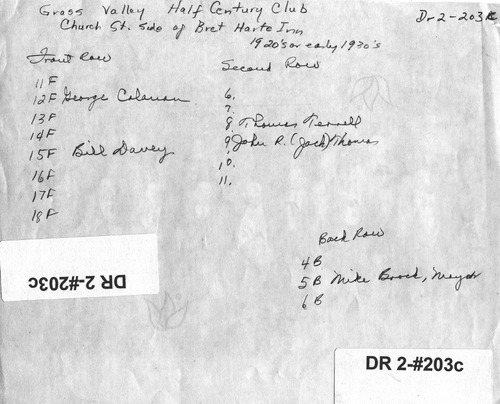 Grass Valley Half Century Club
Dr 2-203c
Church St. side of Bret Harte Inn
1920's or early 1930's
Front Row
11 F
12 F George Calanan
13 F
14 F
15 F Bill Davey
16 F
17 F
18 F
Second Row
6.
7.
8. Thomas Terrell
9. John R. (Jack) Thomas
10.
11.
Back Row
4 B
5 B Mike Brock, Meyer
6 B
DR 2-#203c
DR 2-#203c